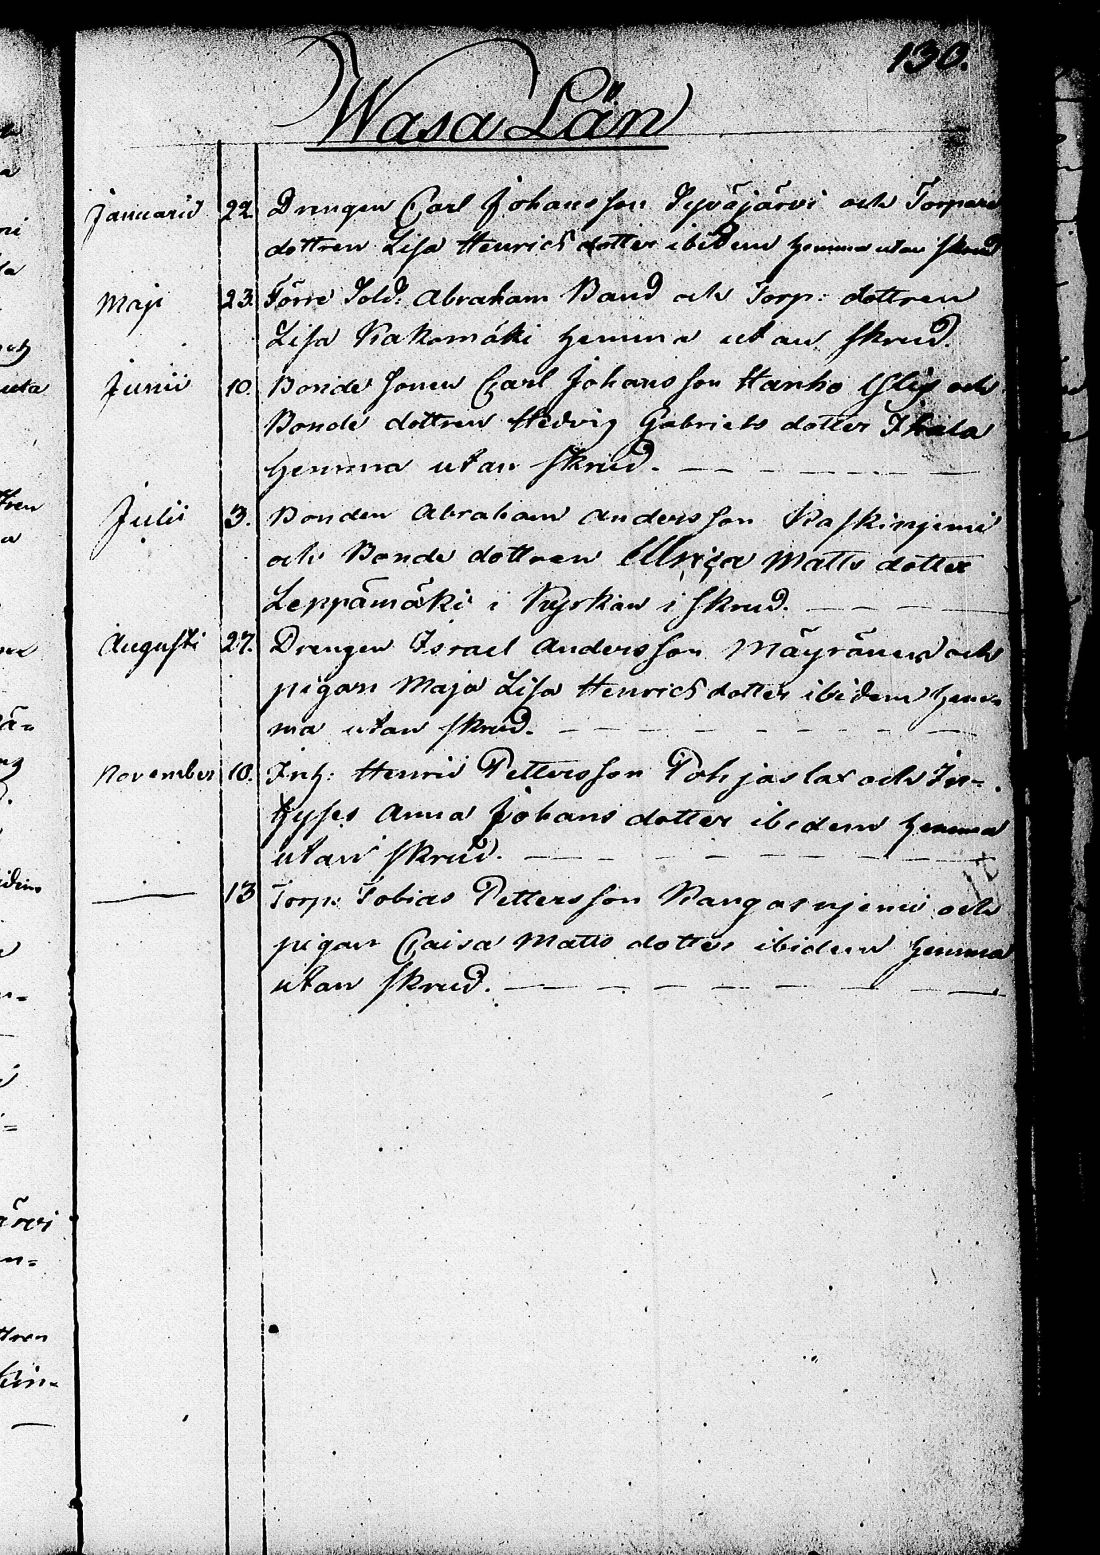 130.
Wasa Län
Januarii 22. Drengen Carl Johansson Syväjärvi och Torpare
dottren Lisa Henrics dotter ibidem hemma utan skrud
Maji 23. Förre Sold: Abraham Band och Torp: dottren
Lisa Kakomäki hemma utan skrud.
Junii 10. Bonde Sonen Carl Johansson Hanho och
Bonde dottren Hedvig Gabriels dotter
hemma utan skrud.
Julii 3. Bonden Abraham Andersson Kaskinjemi
och Bonde dottren Ulrica Matts dotter
Leppämäki i Kyrkan i skrud.
Augusti 27. Drengen Israel Andersson Mäyränen och
pigan Maja Lisa Henrics dotter ibidem hem-
ma utan skrud.
November 10. Inh: Henric Pettersson Pohjaslax och In-
hyses Anna Johans dotter ibidem hemma
utan skrud.
13 Torp: Tobias Pettersson Kangasnjemi och
pigan Caisa Matts dotter ibidem hemma
utan skrud.